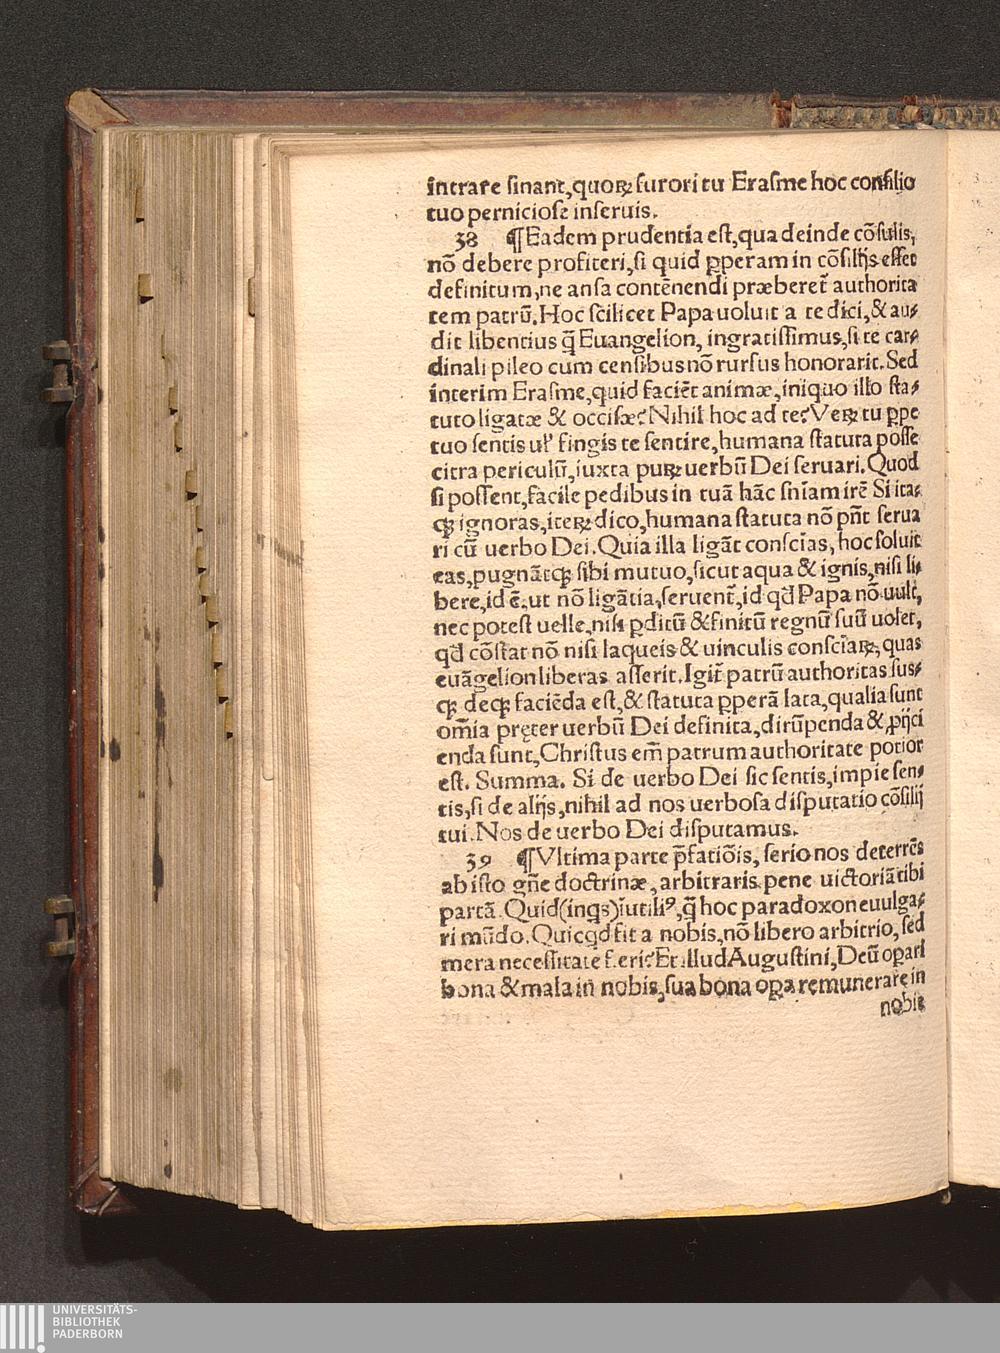 intrare ſinant,quoꝝ furori tu Eraſme hoc conſilio
tuo pernicioſe inſeruis.
38 ¶Eadem prudentia eſt,qua deinde cõſulis,
nõ debere profiteri,ſi quid ꝑperam in cõſilijs eſſet
definitum,ne anſa contẽnendi præberet᷑ authorita
tem patrũ.Hoc ſcilicet Papa uoluit a te dici,& au⸗
dit libentius q̃ Euangelion, ingratiſſimus,ſi te car⸗
dinali pileo cum cenſibus nõ rurſus honorarit.Sed
interim Eraſme,quid faciẽt animæ,iniquo illo ſta⸗
tuto ligatæ & occiſæ?Nihil hoc ad te?Veꝝ tu ꝑpe
tuo ſentis ul̓ fingis te ſentire,humana ſtatuta poſſe
citra periculũ,iuxta puꝝ uerbũ Dei ſeruari.Quod
ſi poſſent,facile pedibus in tuã hãc ſñiam irẽ Si ita⸗
qꝫ ignoras,iteꝝ dico,humana ſtatuta nõ pñt ſerua
ri cũ uerbo Dei.Quia illa ligãt conſciãs, hoc ſoluit
eas,pugnãtqꝫ ſibi mutuo,ſicut aqua & ignis,niſi li⸗
bere,id ẽ.ut nõ ligãtia,ſeruent᷑,id qd̃ Papa nõ uult,
nec poteſt uelle,niſi ꝑditũ & finitũ regnũ ſuũ uolet,
qd̃ cõſtat nõ niſi laqueis & uinculis conſciãꝝ,quas
euãgelion liberas aſſerit.Igit᷑ patrũ authoritas ſuſ⸗
qꝫ deqꝫ faciẽda eſt,& ſtatuta ꝑperã lata,qualia ſunt
om̃ia pręter uerbũ Dei definita,dirũpenda & ꝓijci
enda ſunt,Chriſtus em̃ patrum authoritate potior
eſt. Summa. Si de uerbo Dei ſic ſentis,impie ſen⸗
tis,ſi de alijs,nihil ad nos uerboſa diſputatio cõſilij
tui.Nos de uerbo Dei diſputamus.
39 ¶Vltima parte p̃fatiõis, ſerio nos deterrẽs
ab iſto gñe doctrinæ, arbitraris pene uictoriã tibi
partã.Quid(inqs)ĩutiliꝰ,q̃ hoc paradoxon euulga⸗
ri mũdo.Quicqd fit a nobis,nõ libero arbitrio, ſed
mera neceſſitate fieri?Et illud Auguſtini,Deũ oꝑari
bona & mala in nobis,ſua bona oꝑa remunerare in
nobis
UNIVERSITÄTS-
BIBLIOTHEK
PADERBORN